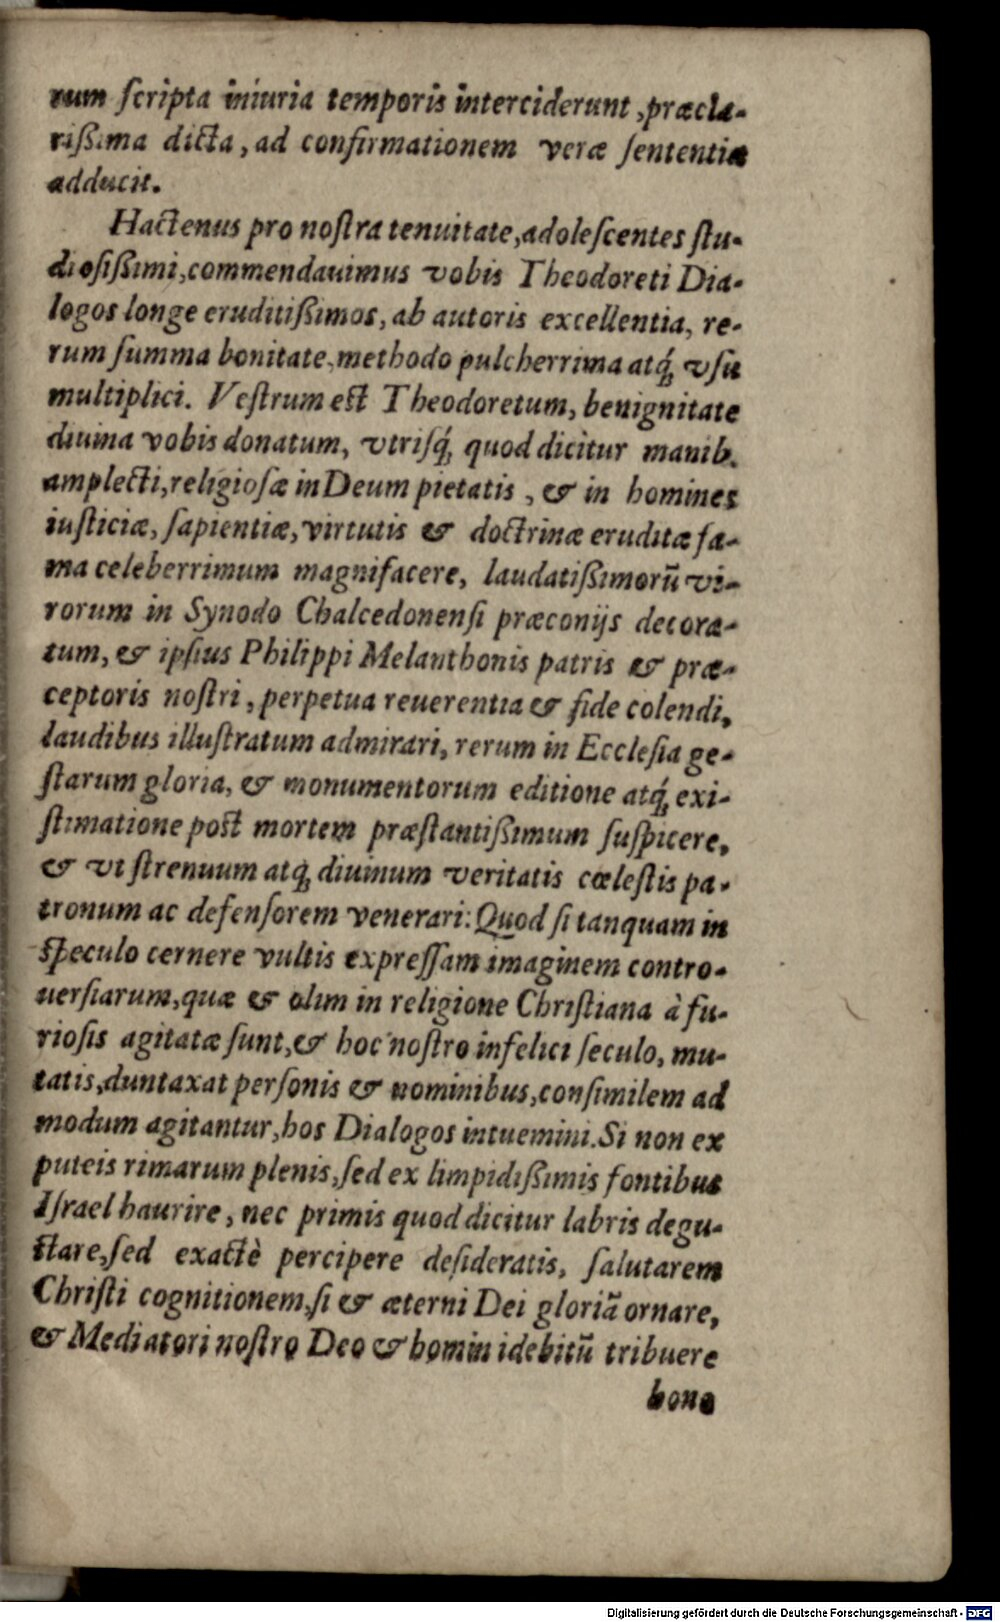 rum ſcripta iniuria temporis interciderunt, præcla-
rißima dicta, ad confirmationem veræ ſententiæ
adducit.
Hactenus pro noſtra tenuitate, adoleſcentes ſtu-
dioſißimi, commendauimus vobis Theodoreti Dia-
logos longe eruditißimos, ab autoris excellentia, re-
rum ſumma bonitate, methodo pulcherrima atq́; vſu
multiplici. Veſtrum eſt Theodoretum, benignitate
diuina vobis donatum, vtriſq́; quod dicitur manib.
amplecti, religioſæ in Deum pietatis, & in homines
iuſticiæ, ſapientiæ, virtutis & doctrinæ eruditæ fa-
ma celeberrimum magnifacere, laudatißimorũ vi-
rorum in Synodo Chalcedonenſi præconijs decora-
tum, & ipſius Philippi Melanthonis patris & præ-
ceptoris noſtri, perpetua reuerentia & fide colendi,
laudibus illuſtratum admirari, rerum in Eccleſia ge-
ſtarum gloria, & monumentorum editione atq́; exi-
ſtimatione poſt mortem præſtantißimum ſuſpicere,
& vt ſtrenuum atq́; diuinum veritatis cœleſtis pa-
tronum ac defenſorem venerari: Quod ſi tanquam in
ſpeculo cernere vultis expreſſam imaginem contro-
uerſiarum, quæ & olim in religione Chriſtiana à fu-
rioſis agitatæ ſunt, & hoc noſtro infelici ſeculo, mu-
tatis, duntaxat perſonis & nominibus, conſimilem ad
modum agitantur, hos Dialogos intuemini. Si non ex
puteis rimarum plenis, ſed ex limpidißimis fontibus
Iſrael haurire, nec primis quod dicitur labris degu-
ſtare, ſed exactè percipere deſideratis, ſalutarem
Chriſti cognitionem, ſi & æterni Dei gloriã ornare,
& Mediatori noſtro Deo & homini debitũ tribuere
hono
Digitalisierung gefördert durch die Deutsche Forschungsgemeinschaft - DFG